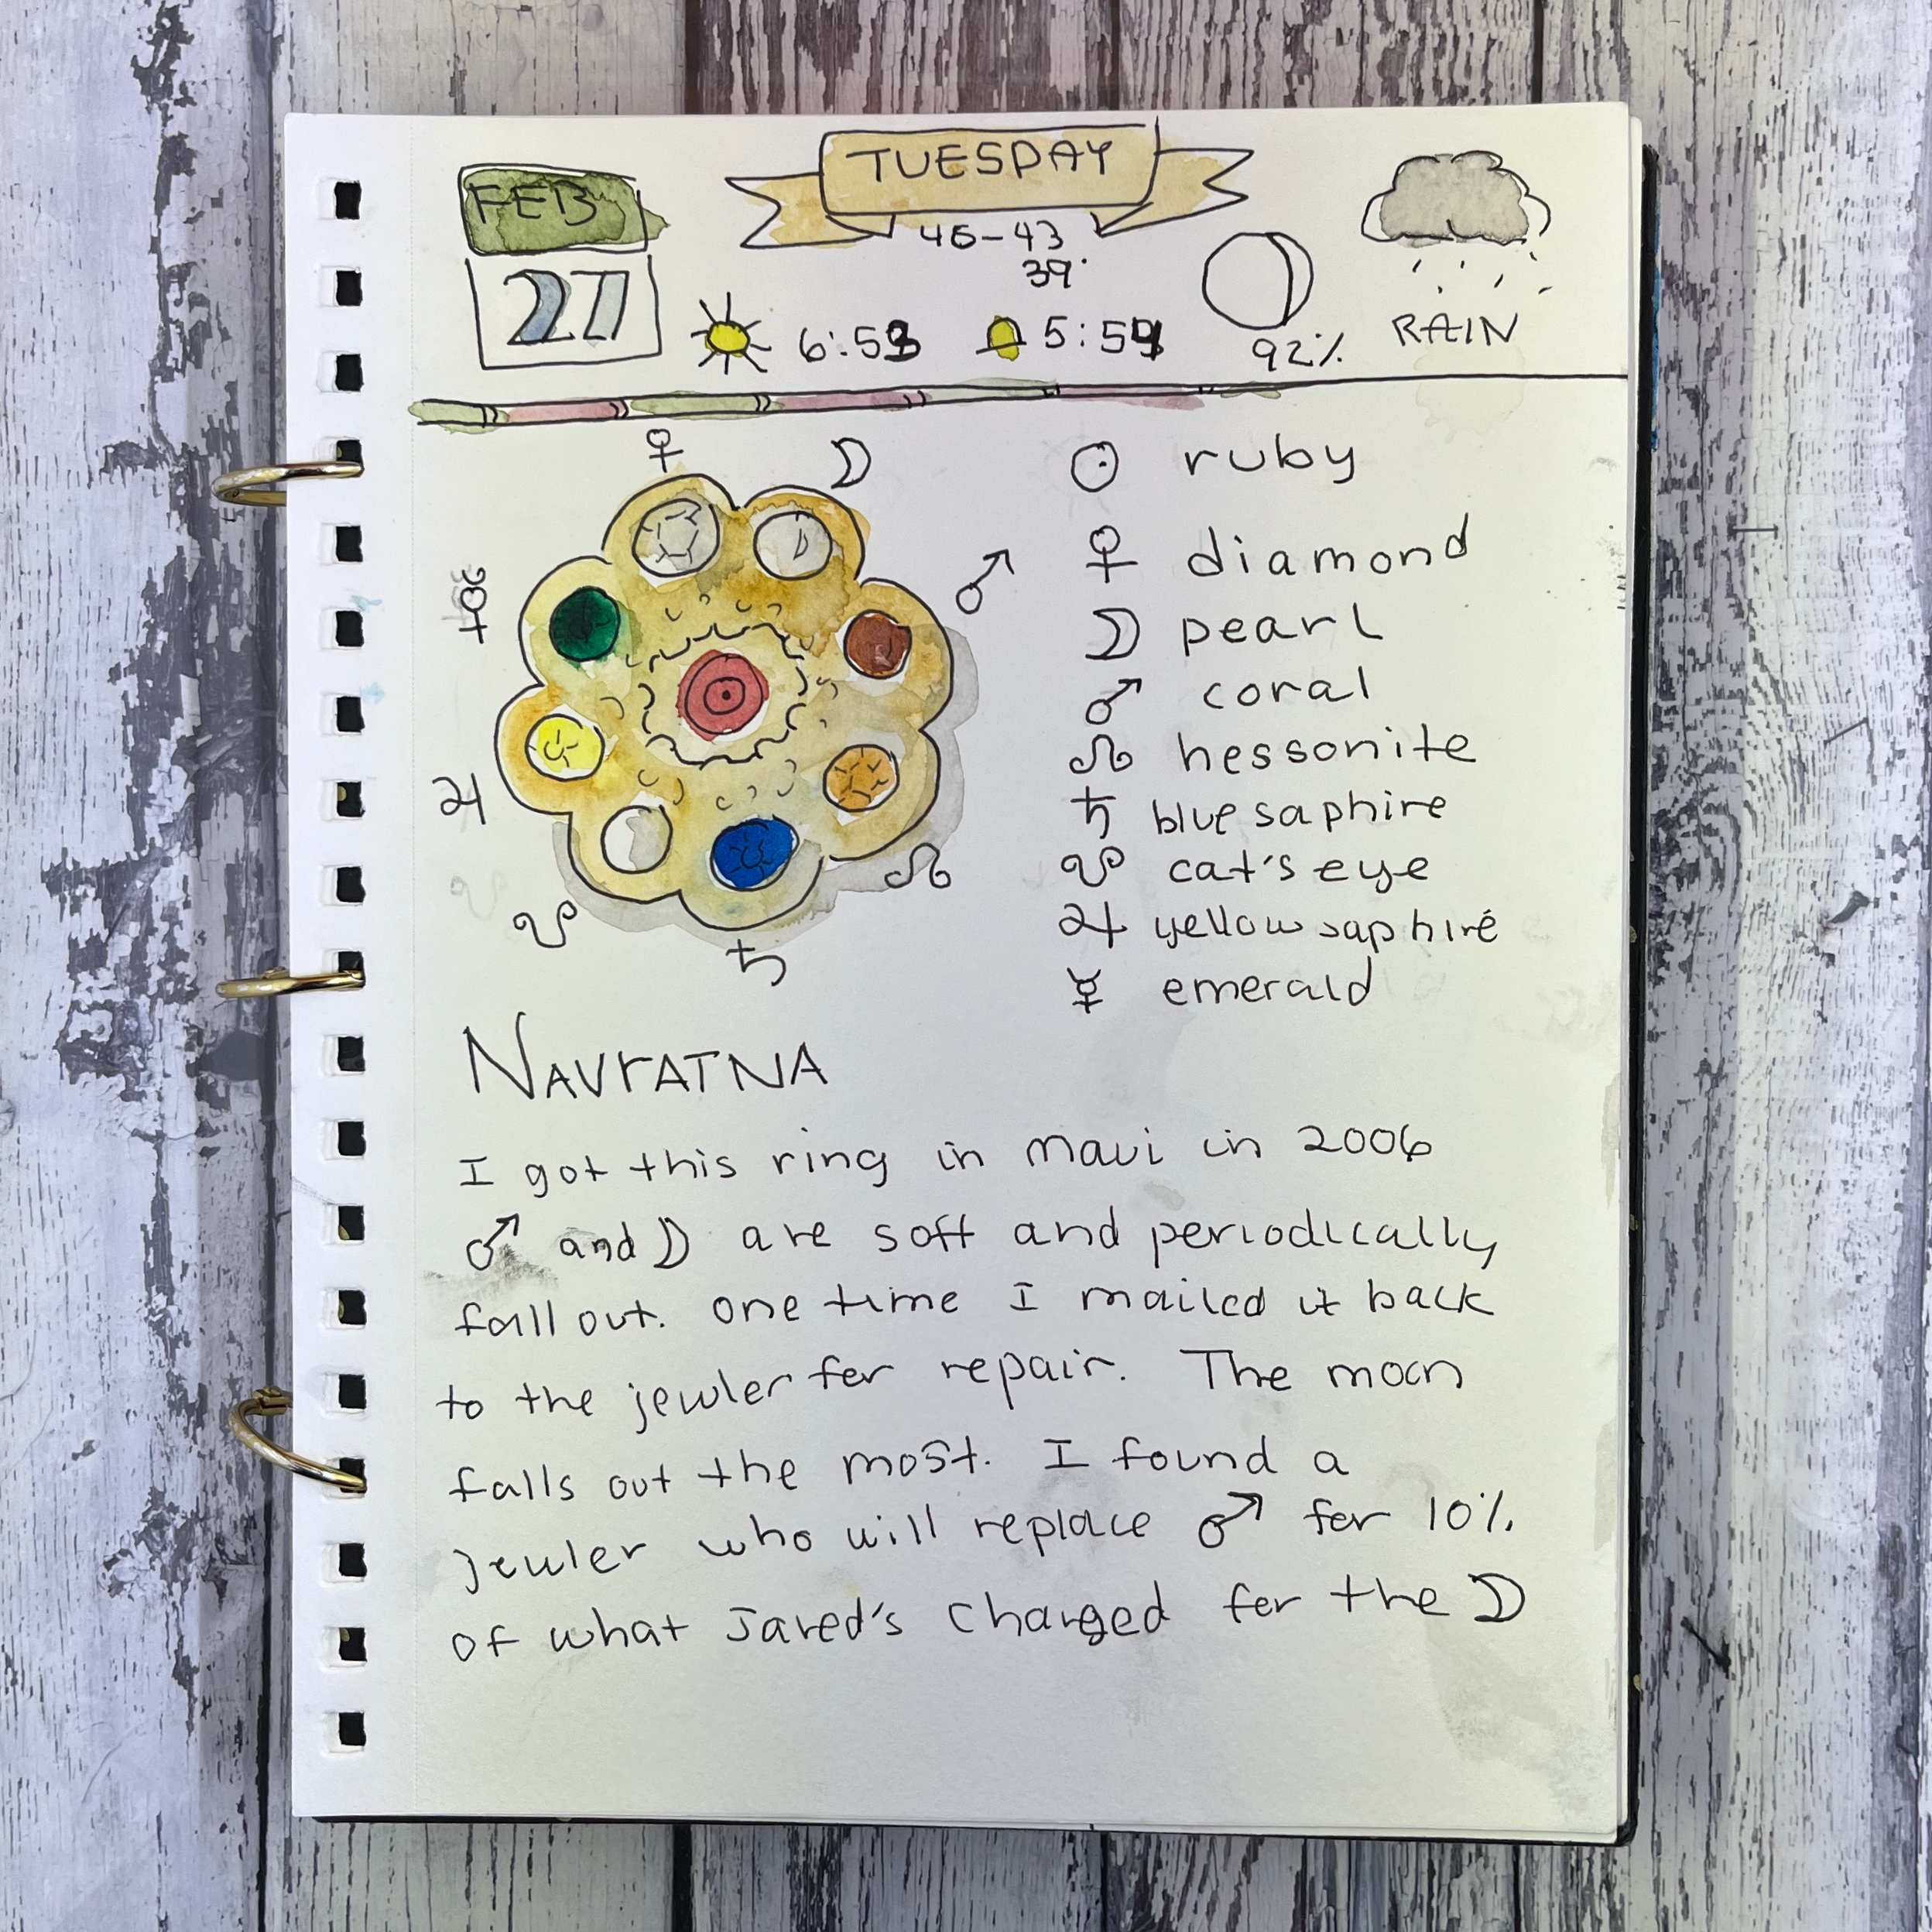 FEB
27
TUESDAY
46-43
39°
6:53
5:54
92%
RAIN
☉ ruby
♀ diamond
☽ pearl
♂ coral
☊ hessonite
♄ blue saphire
☋ cat's eye
♃ yellow saphire
☿ emerald
♀ ☽
☿ ♂
♃ ☊
☋ ♄
NAVrATNA
I got this ring in maui in 2006
♂ and ☽ are soft and periodically
fall out. One time I mailed it back
to the jewler for repair. The moon
falls out the most. I found a
jewler who will replace ♂ for 10%
of what Jared's charged for the ☽